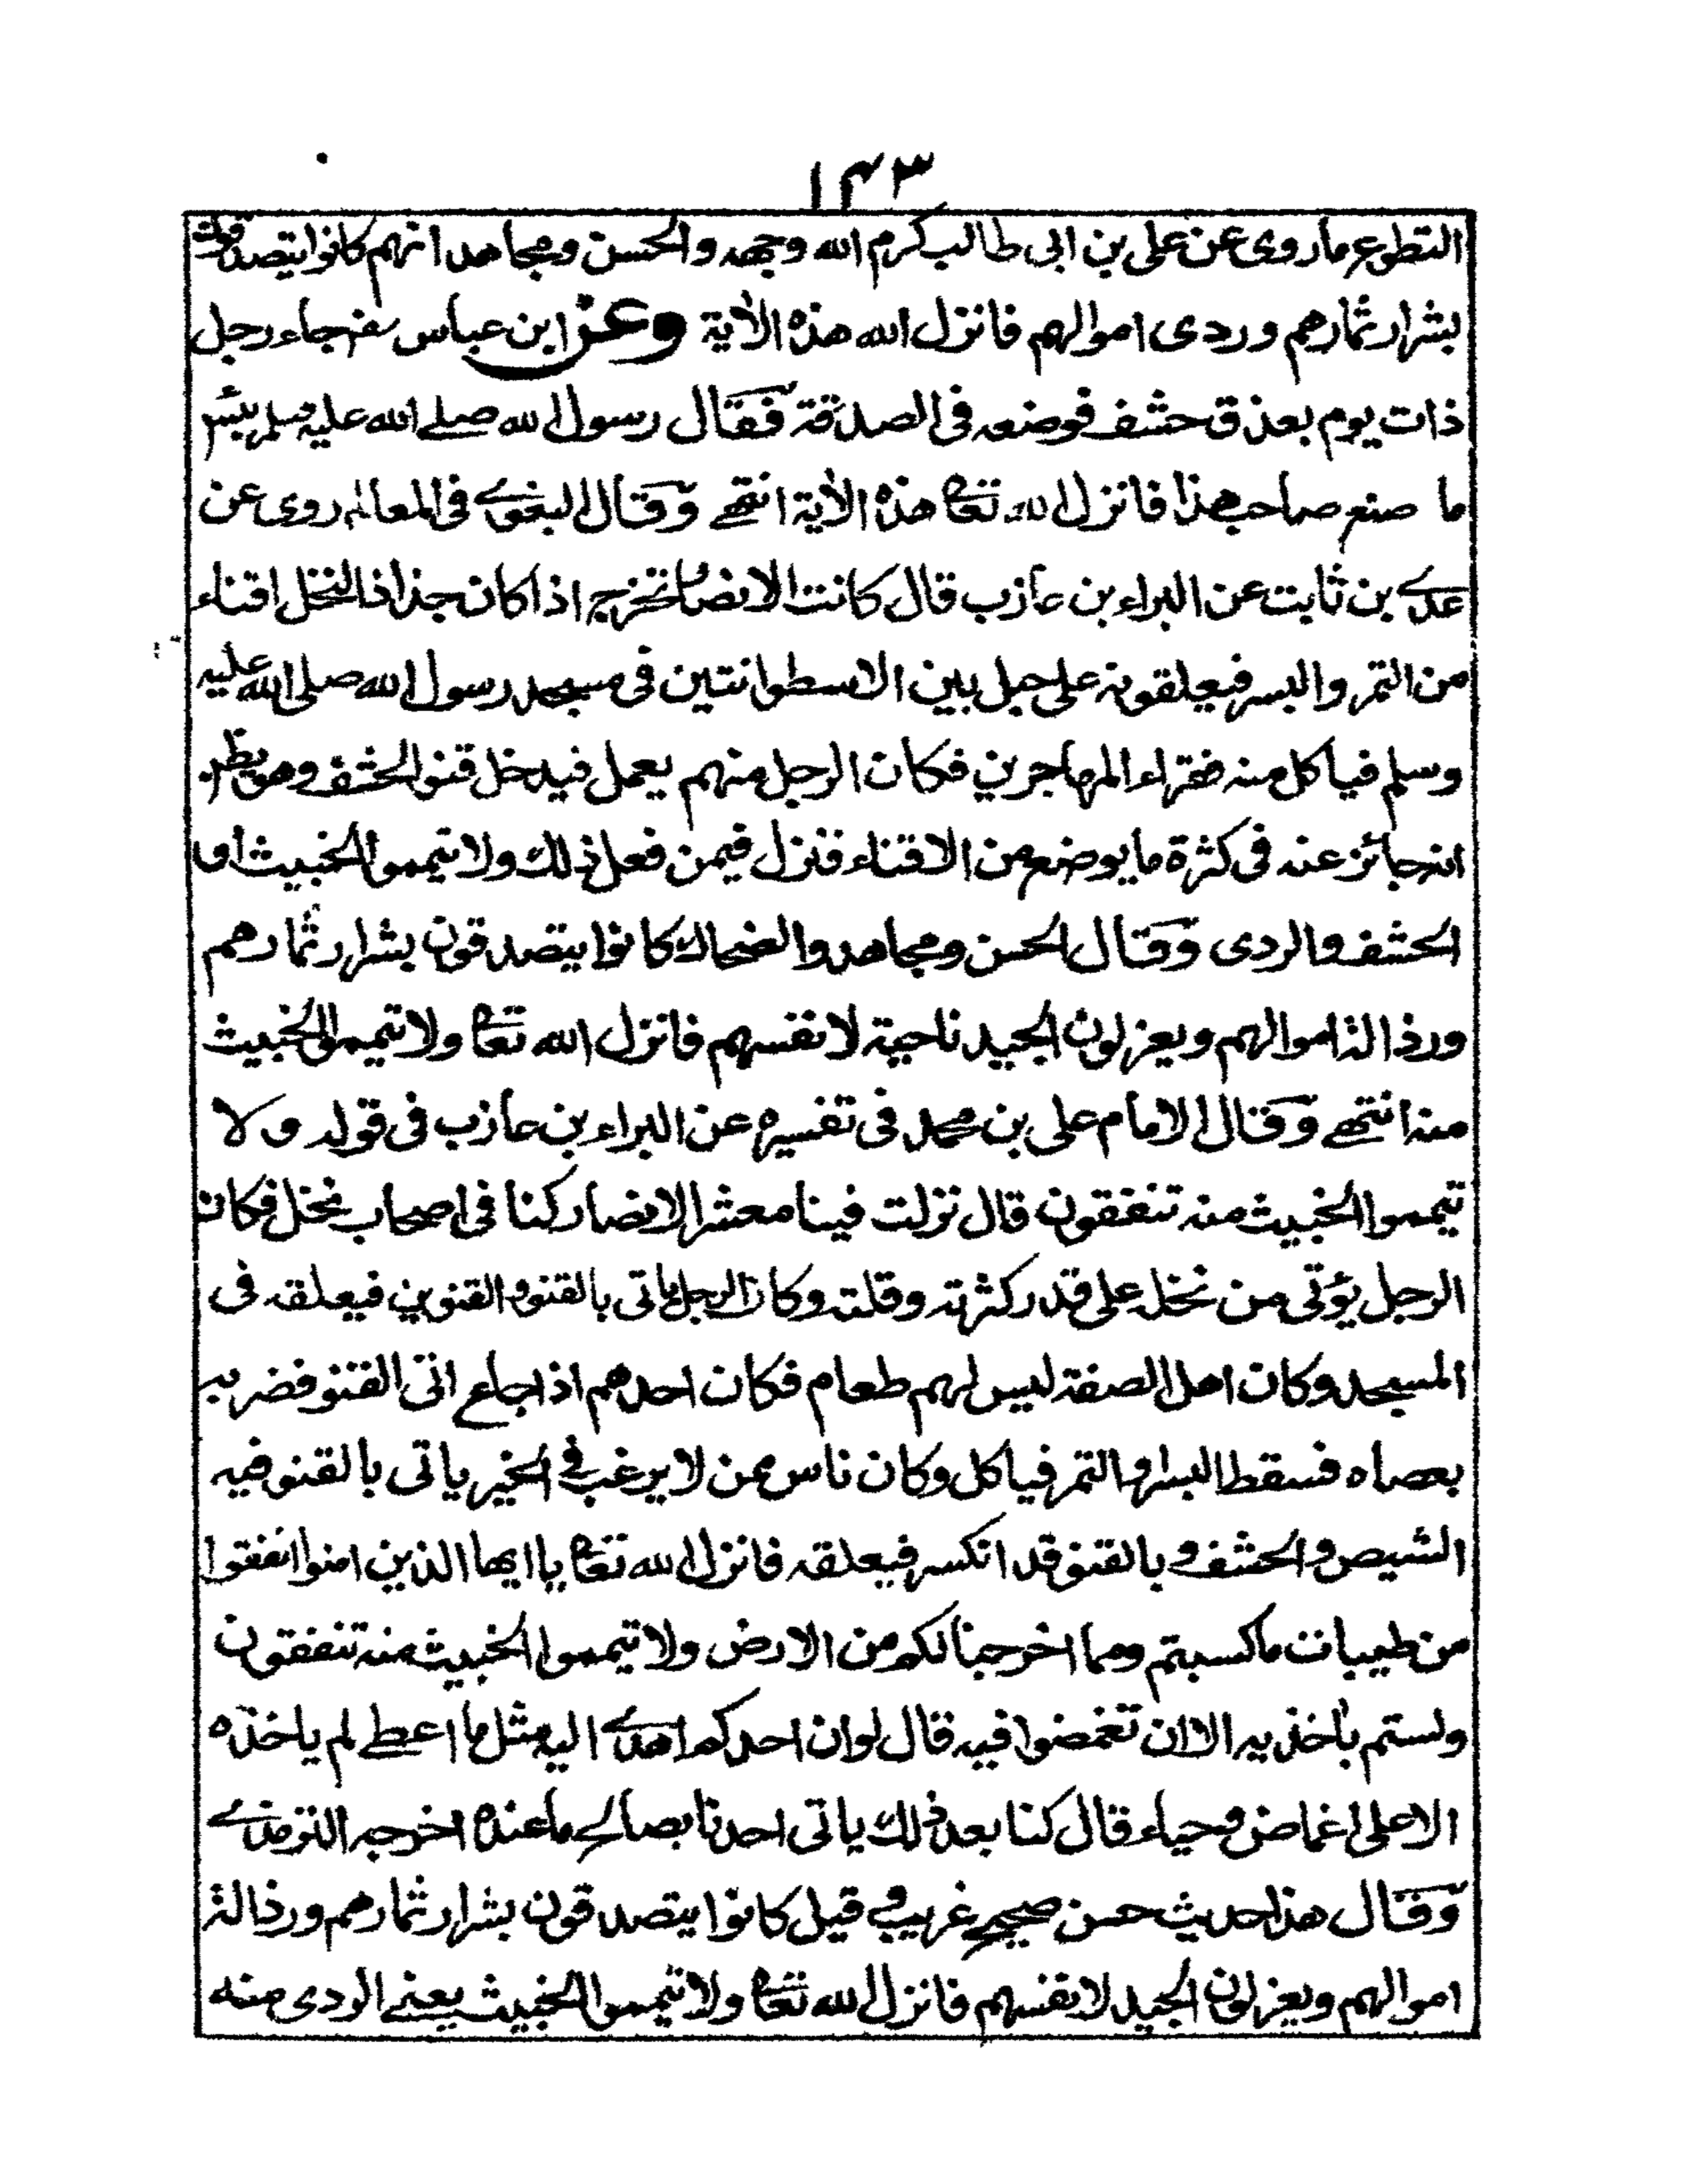 ١٤٣
التطوع ما روى عن على بن ابى طالب كرم الله وجهه والحسن ومجاهد انهم كانوا يتصدقون
بشرار ثمارهم وردى اموالهم فانزل الله هذه الآية وعن ابن عباس رضي جاء رجل
ذات يوم بعذق حشف فوضعه فى الصدقة فقال رسول الله صلے الله عليه وسلم بئس
ما صنع صاحب هذا فانزل الله تعا هذه الآية انتهے وقال البغوے فى المعالم روى عن
عدے بن ثابت عن البراء بن عازب قال كانت الانصار تخرج اذا كان جذاذ النخل اقناء
من التمر والبسر فيعلقونه على حبل بين الاسطوانتين فى مسجد رسول الله صلى الله عليه
وسلم فياكل منه فقراء المهاجرين فكان الرجل منهم يعمل فيدخل قنو الحشف وهو يظن
انه جائز عنه فى كثرة ما يوضع من الاقناء فنزل فيمن فعل ذلك ولا تيمموا الخبيث اى
الحشف والردى وقال الحسن ومجاهد والضحاك كانوا يتصدقون بشرار ثمارهم
ورذالة اموالهم ويعزلون الجيد ناحية لانفسهم فانزل الله تعا ولا تيمموا الخبيث
منه انتهے وقال الامام على بن محمد فى تفسيره عن البراء بن عازب فى قوله ولا
تيمموا الخبيث منه تنفقون قال نزلت فينا معشر الانصار كنا فى اصحاب نخل فكان
الرجل يؤتى من نخله على قدر كثرته وقلته وكان الرجل ياتى بالقنو والقنوين فيعلقه فى
المسجد وكان اهل الصفة ليس لهم طعام فكان احدهم اذا جاع اتى القنو فضربه
بعصاه فسقط البسر والتمر فياكل وكان ناس ممن لا يرغب فى الخير ياتى بالقنو فيه
الشيص والحشف وبالقنو قد انكسر فيعلقه فانزل الله تعا يا ايها الذين امنوا انفقوا
من طيبات ما كسبتم ومما اخرجنا لكم من الارض ولا تيمموا الخبيث منه تنفقون
ولستم بآخذيه الا ان تغمضوا فيه قال لو ان احدكم اهدے اليه مثل ما اعطے لم ياخذه
الا على اغماض وحياء قال كنا بعد ذلك ياتى احدنا بصالح ما عنده اخرجه الترمذے
وقال هذا حديث حسن صحيح غريب وقيل كانوا يتصدقون بشرار ثمارهم ورذالة
اموالهم ويعزلون الجيد لانفسهم فانزل الله تعا ولا تيمموا الخبيث يعنے الردى منه